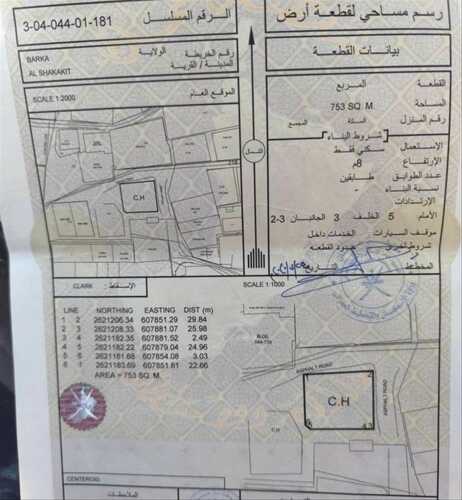 رسم مساحي لقطعة أرض
الرقم المسلسل
3-04-044-01-181
بيانات القطعة
الولاية
BARKA
رقم الخريطة
المدينة / القرية
AL SHAKAKIT
الموقع العام
SCALE 1:2000
C.H
الشمال
القطعة
المربع
المساحة
753 SQ. M.
رقم المنزل
السكة
المجمع
شروط البناء
الإستعمال
سكني فقط
الإرتفاع
8م
عدد الطوابق
طابقين
نسبة البناء
-
الإرتدادات
الأمام 5 الخلف 3 الجانبان 3-2
موقف السيارات
الخدمات داخل
حدود القطعة
المخطط
CLARK
الإسقاط
SCALE 1:1000
LINE NORTHING EASTING DIST (m)
1 2 2621206.34 607851.29 29.84
2 3 2621208.33 607881.07 25.98
3 4 2621182.35 607881.52 2.49
4 5 2621182.22 607879.04 24.96
5 6 2621181.68 607854.08 3.03
6 1 2621183.69 607851.81 22.66
AREA = 753 SQ. M.
ASPHALT ROAD
ASPHALT ROAD
C.H
2
4 3
CENTROID
الملاحظات